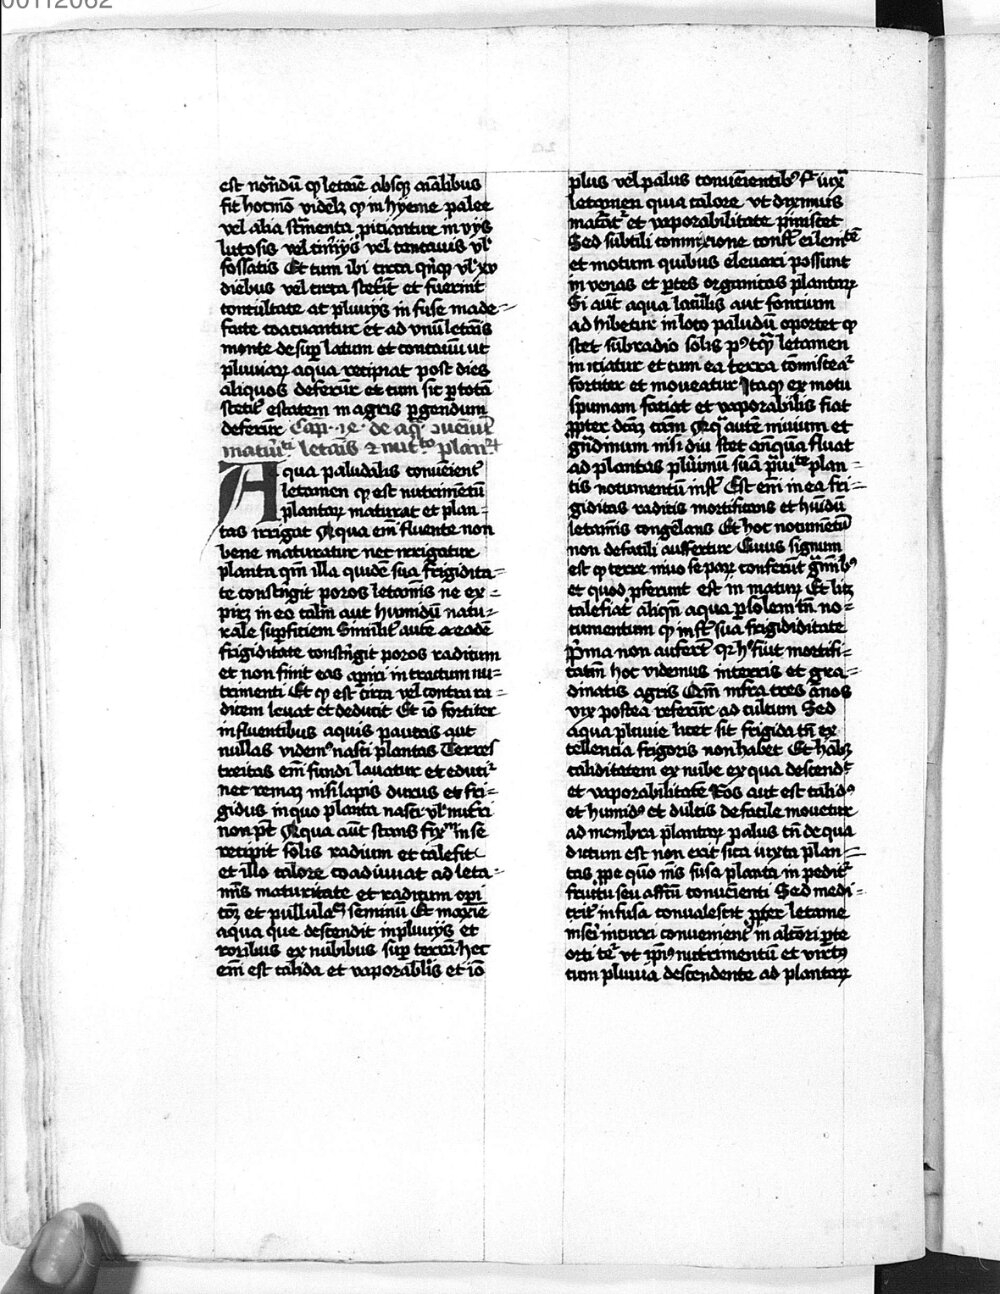 00112062
est nondū ꝙ letamē absqꝫ aīalibus
fit hoc modo videlꝫ ꝙ in hyeme palee
vel alia strīnenta piciantur in vijs
lutosis vel vel concauis vl'
fossatis Et tum ibi circa vl' xv
diebus vel circa steterīt et fuerint
conculcate ac pluuijs infuse made-
facte coacuantur et ad vnū letaīs
monte desuꝑ latum et concauū ut
pluuiaꝝ aqua recipiat post dies
aliquos deferūr et cum sic ꝑ totā
steterit estatem in agris ꝑgendum
deferūr Cap. de aq̄ ꝯuēiūt
matūr letaīs ⁊ nut plan
Aqua paludalis conuēient
letamen ꝙ est nutrimētū
plantaꝝ maturat et plan-
tas irrigat Aqua em̄ fluente non
bene maturatur nec irrigatur
planta qm̄ illa quidē sua frigidita-
te constringit poros letamīs ne ex-
in eo calīm aut humidū natu-
rale suꝑficiem Similit autē a eadē
frigiditate constringit poros radicum
et non sinit eas apiri in tractum nu-
trimenti Et ꝙ est circa vel contra ra-
dicem leuat et deducit Et iō fortiter
influentibus aquis paucas aut
nullas videmꝰ nasci plantas Terres
treitas em̄ fundi lauatur et educit
nec remaꝫ nisi lapis durus et fri-
gidus in quo planta nasci vl' nutri
non pōt Aqua aūt stans fix in se
recipit solis radium et calefit
et illo calore coadiuuat ad leta-
mīs maturitate et radicum opi
et pullulac seminū Et maxie
aqua que descendit in pluuijs et
roribus ex nubibus suꝑ terrā hec
em̄ est calida et vaporablis et iō
plus vel palus conuēientibꝰ iuxᵃ
letamen quia calore vt diximus
maturat et vaporabilitate
Sed subtili commixione const
et motum quibus eleuari possunt
in venas et ꝑtes organicas plantaꝝ
Si aūt aqua lacualis aut fontium
adhibetur in loco paludū oportet ꝙ
stet sub radio solis pꝰ letamen
iniciatur et cum ea terra comiscea
fortiter et moueatur Itaqꝫ ex motu
spumam faciat et vaporabilis fiat
ꝓpter cām autē niuium et
gndinum nisi diu stet fluat
ad plantas plurimū suā plan-
tis nocumentū infert Est em̄ in ea fri-
giditas radicis mortificans et humidū
letamīs congelans Et hoc nocumētū
non defacili auffertur Cuius signum
est ꝙ terre niuo conferunt
et quod ꝓferunt est in matur Et
calefiat aliqn̄ aqua ꝑ solem tn̄ no-
cumentum ꝙ infert sua frigididitate
p̄ma non aufert qꝛ fiut mortifi-
catin hoc videmus in terris et gra-
dinatis agris Qm̄ infra tres annos
vix postea referūr ad cultum Sed
aqua pluuie licet sit frigida tn̄ ex
cellencia frigoris non habet Et habꝫ
caliditatem ex nube ex qua descend
et vaporabilitatē Ros aut est calidꝰ
et humidꝰ et dulcis defacile mouetur
ad membra plantaꝝ palus tn̄ de qua
dictum est non erit sita iuxta plan-
tas ꝓpe quo infusa planta inpedit
fructu seu affectū conuēienti Sed medi
crit infusa conualescit ꝓpter letame
conuenient in altiori ꝑte
orti vt nutrimentū et virtꝰ
cum pluuia descendente ad plantaꝝ